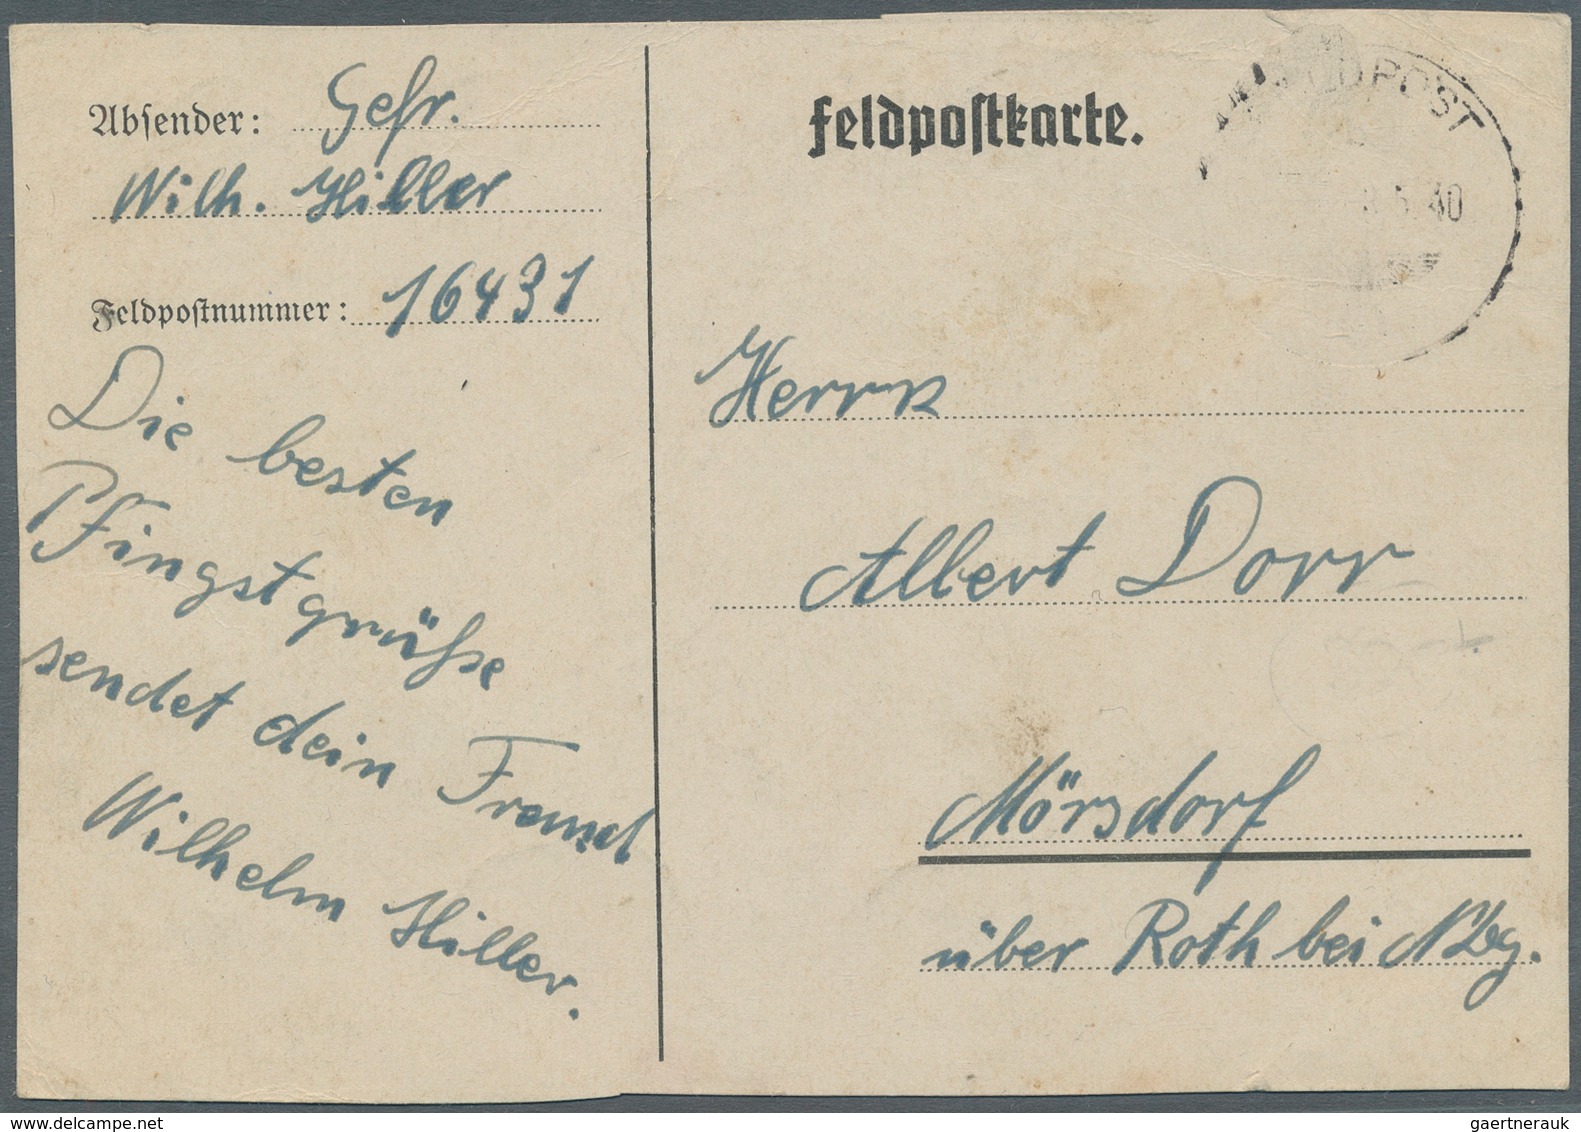 Absender: Gefr.
Wilh. Hiller
Feldpostnummer: 16431
Die besten
Pfingstgrüße
sendet dein Freund
Wilhelm Hiller.
Feldpostkarte.
POST
5.40
Herrn
Albert Dorr
Mörsdorf
über Roth bei Nbg.
www.delcampe.net
gaertnerauk